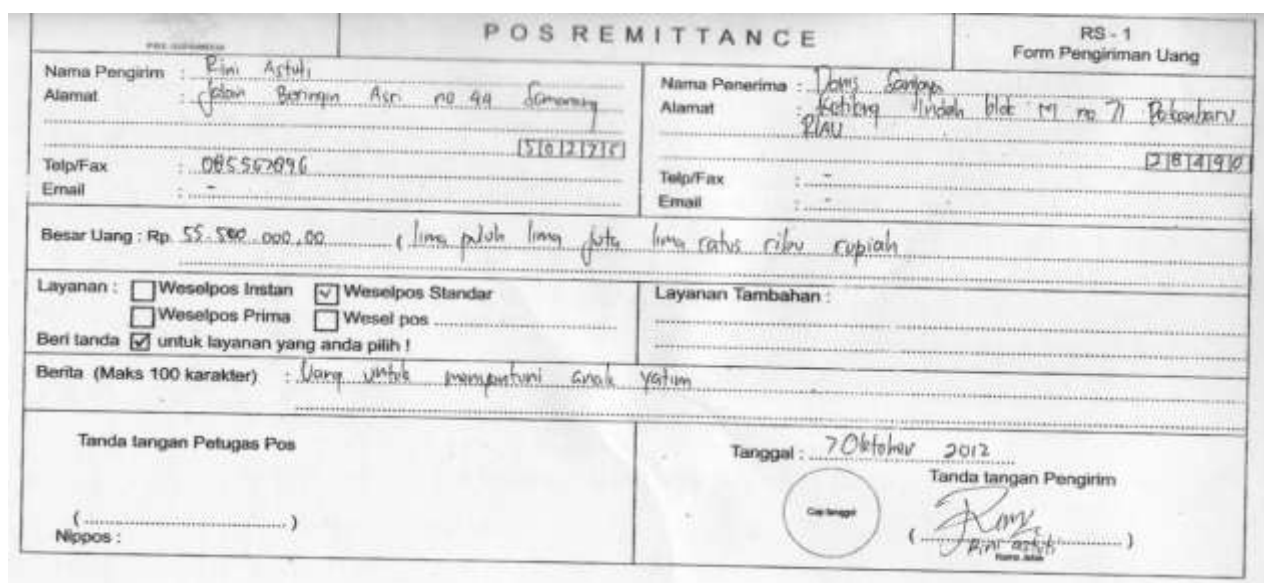 POS INDONESIA
POS REMITTANCE
RS - 1
Form Pengiriman Uang
Nama Pengirim : Rini Astuti
Alamat : Jalan Beringin Asri no 44 Semarang
Telp/Fax : 085567896
Email : -
Nama Penerima : Doms
Alamat : Indah blok M no 71 Pekanbaru
RIAU
28490
Telp/Fax : -
Email : -
Besar Uang : Rp. 55.500.000,00 ( lima puluh lima juta lima ratus ribu rupiah
Layanan : Weselpos Instan Weselpos Standar
Weselpos Prima Wesel pos
Beri tanda ☑ untuk layanan yang anda pilih !
Layanan Tambahan :
Berita (Maks 100 karakter) : Uang untuk anak yatim
Tanda tangan Petugas Pos
(..............................)
Nippos :
Tanggal : 7 Oktober 2012
Tanda tangan Pengirim
Cap tanggal
Rini astuti
Nama Jelas